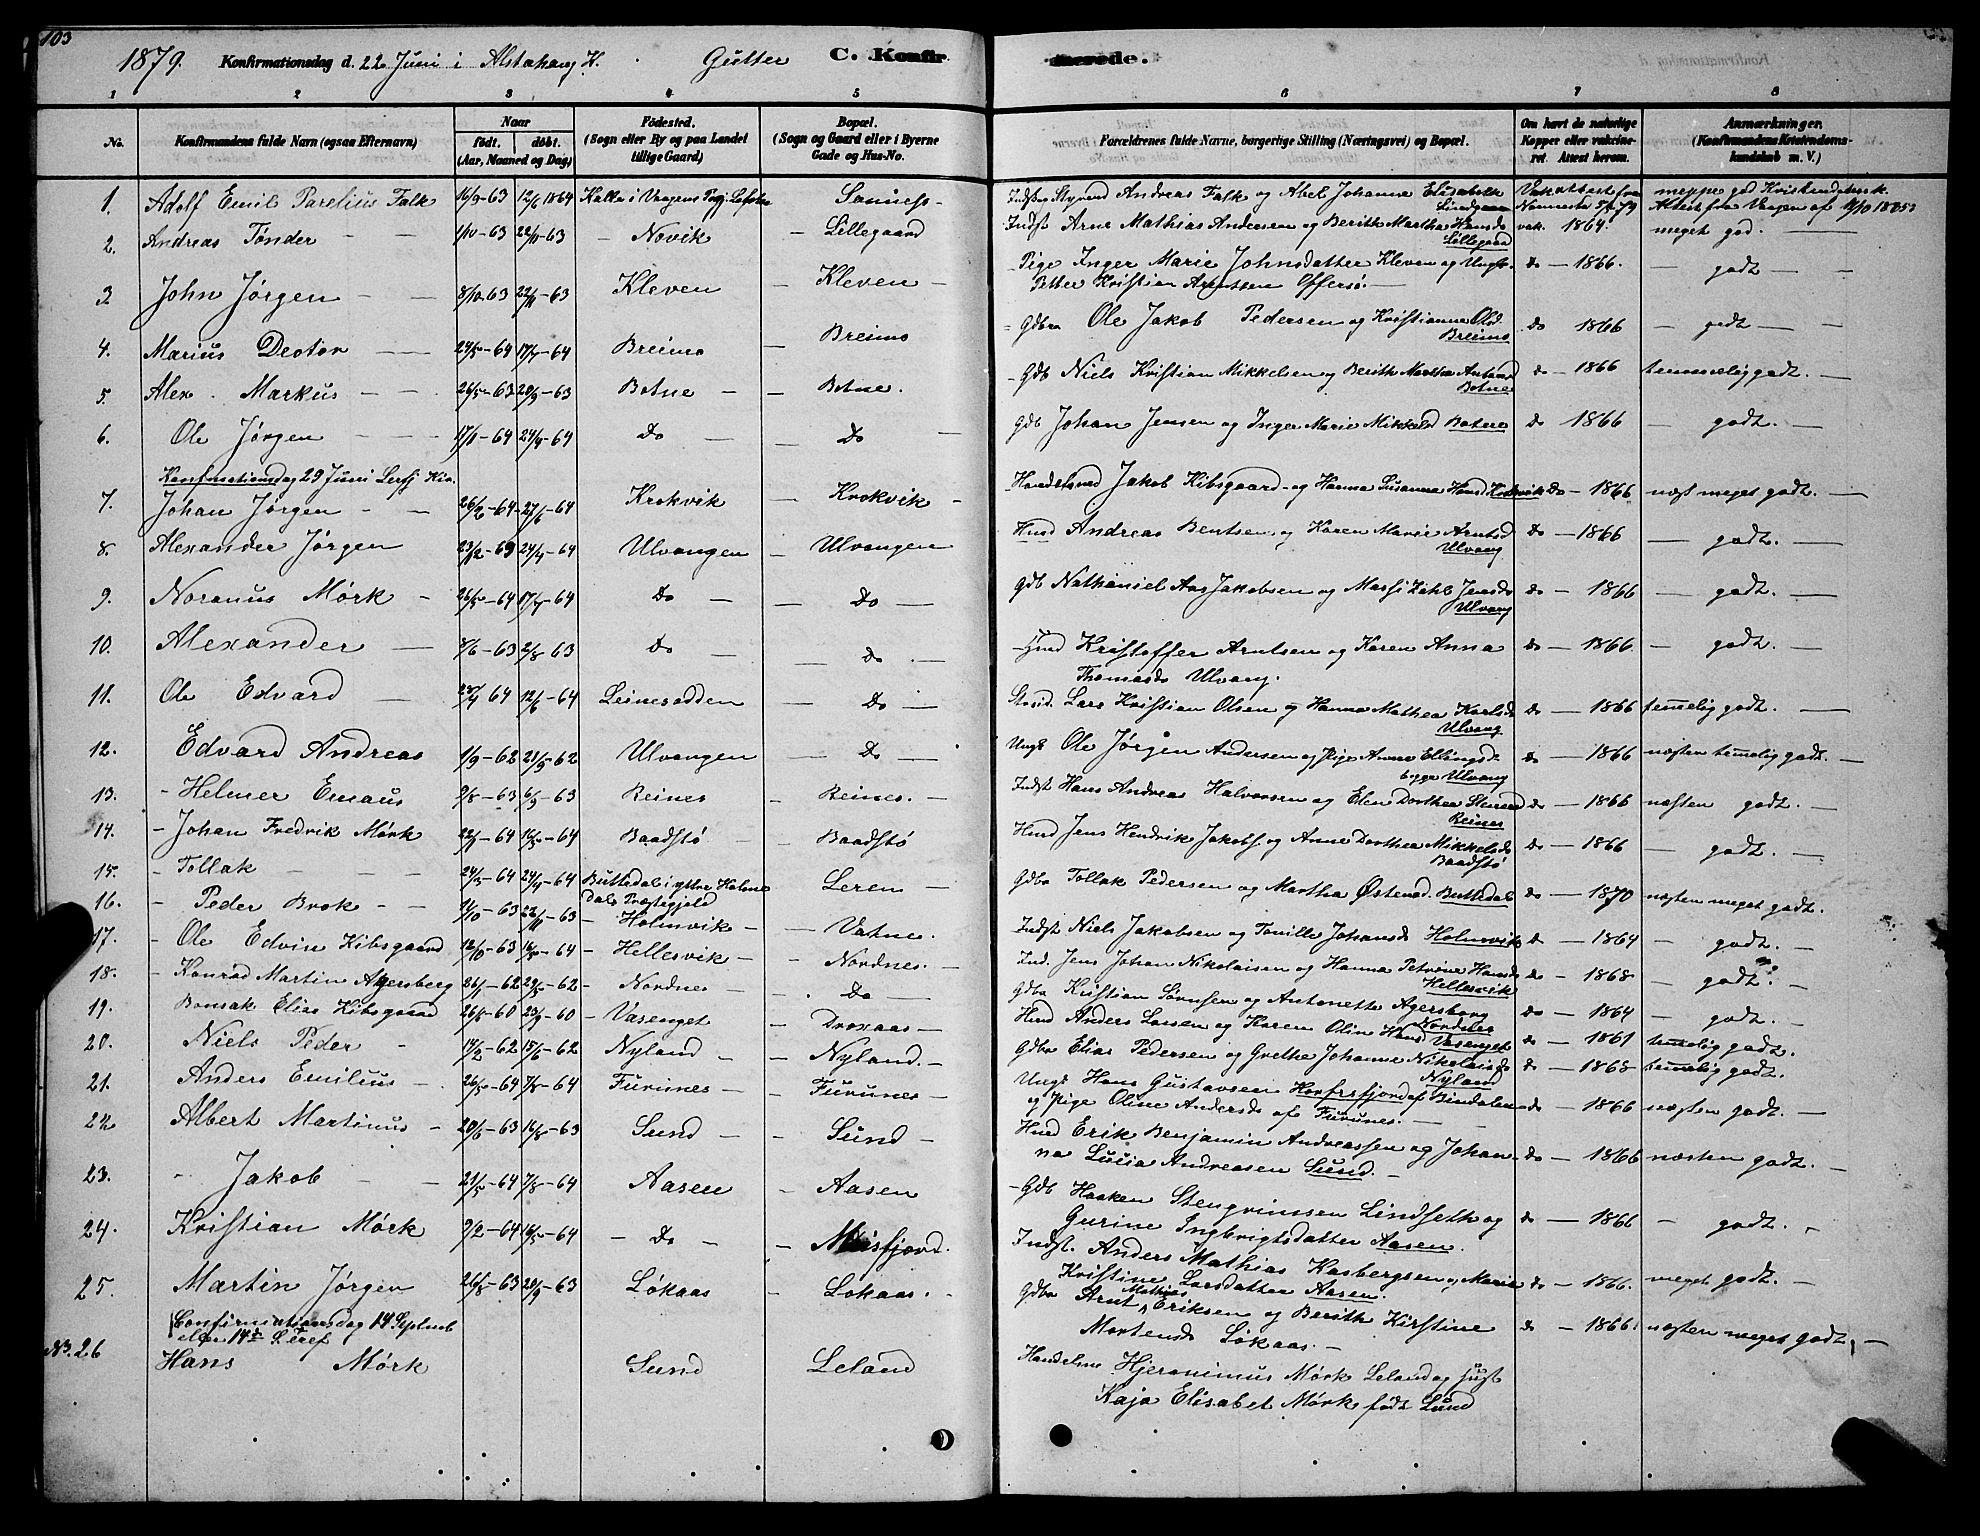 103
1879. Konfirmationsdag d. 22 Juni i Alstahaug K. Gutter C. Konfirmerede.
1 2 3 4 5 6 7 8
No. Konfirmandens fulde Navn (ogsaa Efternavn) Naar født. døbt. (Aar, Maaned og Dag) Fødested. (Sogn eller By og paa Landet tillige Gaard) Bopæl. (Sogn og Gaard eller i Byerne Gade og Hus-No. Forældrenes fulde Navne, borgerlige Stilling (Næringsvei) og Bopæl. Om havt de naturlige Kopper eller vakcineret. Attest herom. Anmærkninger. (Konfirmandens Kristendomskundskab m. V.)
1. Adolf Emil Parelius Falk 16/9-63 12/6 1864 Kalle i Vaagens Pgj. Lofoten Sannes- Andreas Falk og Abel Johanna Elisabeth
2. Andreas Tønder 1/10-63 22/11-63 Novik Lillegaard Indst Arne Mathias Andersen og Berith Martha Hansd Lillegaard vak. 1864. meget god
3. John Jørgen 8/10-63 22/11-63 Kleven Kleven Pige Inger Marie Johnsdatter Kleven og Ungk.
Petter Kristian Arntsen Offersø. do 1866. godt
4. Marius Deotor 24/5-64 17/7-64 Breimo Breimo Gdbr Ole Jakob Pedersen og Kristianna Olsd. Breimo do 1866 godt
5. Alex. Markus 26/5-63 20/9-63 Botne Botne. Gdb Niels Kristian Mikkelsen og Berith Martha Botne do 1866 temmelig godt.
6. Ole Jørgen 17/1-64 24/4-64 Do Do Gdb Johan Jensen og Inger Marie Mikkelsd Botne do 1866 godt.
Konfirmationsdag 29 Juni Lerfj. Kir.
7. Johan Jørgen 26/2-64 27/6-64 Krokvik Krokvik Handelsmd Jakob Kibsgaard og Hanna Susanna Hansd Krokvik do 1866 næst meget godt.
8. Alexander Jørgen 23/12-63 24/4-64 Ulvangen Ulvangen Hmd Andreas Bentsen og Karen Marie Arntsd Ulvang do 1866 godt.
9. Noranus Mørk 26/5-64 17/7-64 Do Do Gdb Nathaniel Aas Jakobsen og Massi Zahl Jensd Ulvang do 1866 godt.
10. Alexander 8/6-63 2/8-63 Do Do Hmd Kristoffer Arntsen og Karen Anna
Thomasd Ulvang. do 1866. godt.
11. Ole Edvard 24/4 64 12/6-64 Leinesodden Do Lars Kristian Olsen og Hanna Mathea Karlsd Ulvang do 1866 temelig godt.
12. Edvard Andreas 1/9-62 21/9-62 Ulvangen Do Ungk Ole Jørgen Andersen og Pige Anne Ellingsd begge Ulvang do 1866 næsten temelig godt.
13. Helmer Emaus 9/8-63 6/9-63 Reines Reines. Indst Hans Andreas Halvorsen og Elen Dorthea Reines do 1866 næsten godt.
14. Johan Fredrik Mørk 22/1-64 16/5-64 Baadstø Baadstø Hmd Jens Hendrik Jakobs. og Anne Dorthea Mikkelsd Baadstø do 1866 godt.
15. Tollak 24/3-64 24/4-64 Buttedal i ytre Holme
dals Præstegjeld Leren Gdbr Tollak Pedersen og Martha Østensd. Buttedal do 1870 næsten meget godt.
16. Peder Brok 14/10-63 22/11-63 Holmvik Vatne. Indst Niels Jakobsen og Tonille Johansd Holmvik do 1864 godt.
17. Ole Edvin Kibsgaard 12/10-63 16/5-64 Hellesvik Nordnes. Ind. Jens Johan Nikolaisen og Hanna Petrine Hansd Hellesvik do 1868 godt.
18. Konrad Martin Agersborg 26/1-62 29/5-62 Nordnes Do Gdbr Kristian Sørnsen og Antonette Agersborg Nordnes do 1864 godt.
19. Bonsak Elias Kibsgaard 26/8-60 23/9-60 Vasenget Droxaas Hmd Anders Lassen og Karen Oline Hansd Vasenget do 1861 temelig godt.
20. Niels Peder 14/2-62 15/6-62 Nyland Nyland. Gdbr Elias Pedersen og Grethe Johanne Nikolaisd Nyland do 1865 temelig godt.
21. Anders Emilius 26/5-64 7/8-64 Furunes Furunes Ungk Hans Gustavsen Horfersfjord af Bindalen
og Pige Oline Andersd af Furunes. do 1866 næsten godt.
22 Albert Martinus 20/6-63 16/8-63 Sund Sund Hmd Erik Benjamin Andreassen og Johan-
na Lucia Andreasen Sund. do 1866 næsten godt.
23. Jakob 21/5-64 7/8-64 Aasen Aasen Gdb Haaken Stengrimsen Lindseth og
Gurine Ingbrigtsdatter Aasen. do 1866 godt.
24. Kristian Mørk 9/2-64 16/5-64 Do Meisfjord. Indst. Anders Mathias Kasbergsen og Marie
Kristine Larsdatter Aasen. do 1866. meget godt.
25. Martin Jørgen 26/8-63 20/9-63 Løkaas Løkaas. Gdbr Arnt Mathias Eriksen og Berith Kirstine
Mortensd Løkaas. do 1866. næsten meget godt.
Confirmationsdag 14 Septemb
eller 14de S. Tref
No. 26 Hans Mørk Sund Leland Handelsm Hjeronimus Mørk Leland og Hust
Kaja Elisabet Mørk født Lund